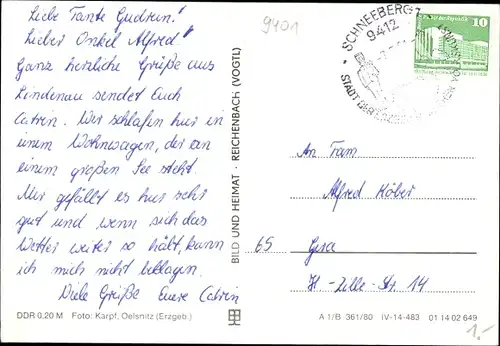 Liebe Tante Gudrun!
Lieber Onkel Alfred!
Ganz herzliche Grüße aus
Lindenau sendet Euch
Catren. Wir schlafen hier in
einem Wohnwagen, der an
einem großen See steht.
Mir gefällt es hier sehr
gut und wenn sich das
Wetter weiter so hält, kann
ich mich nicht beklagen.
Viele Grüße Eure Catren
DDR 0,20 M Foto: Karpf, Oelsnitz (Erzgeb.)
BILD UND HEIMAT · REICHENBACH (VOGTL)
9401
SCHNEEBERG 1
9412
STADT DER
10
An Fam.
Alfred Höber
65 Gera
H.-Zille-Str. 14
A 1/B 361/80 IV-14-483 01 14 02 649
1.-